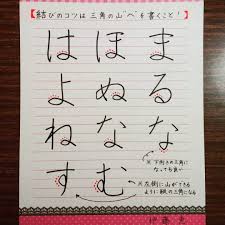 【結びのコツは三角の山"へ"を書くこと!】
は ほ ま
よ ぬ る
ね な な
※下向きの三角に
なっても良い
す む
※左側に山ができる
ように縦の三角になる